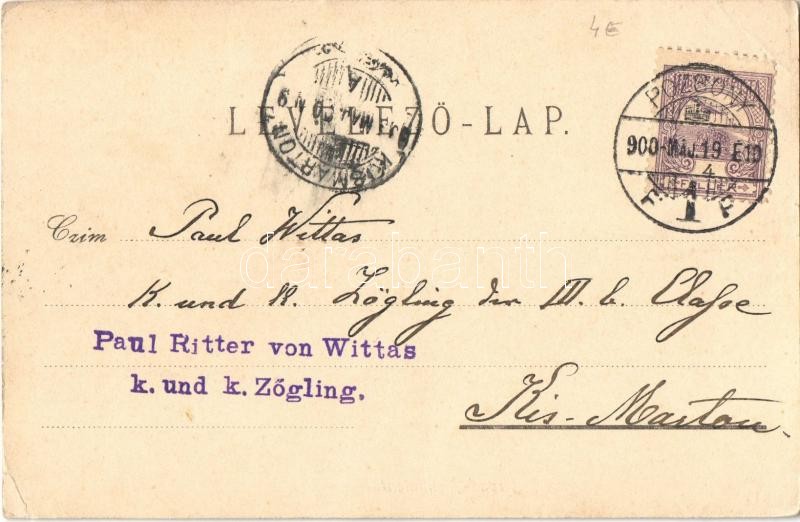 4E
LEVELEZŐ-LAP.
KISMARTON
POZSONY
900-MÁJ.19 E10
4
FILLÉR
Czim Paul Wittas
K. und K. Zögling der III. b. Classe
Kis-Marton.
Paul Ritter von Wittas
k. und k. Zőgling.
darabanth